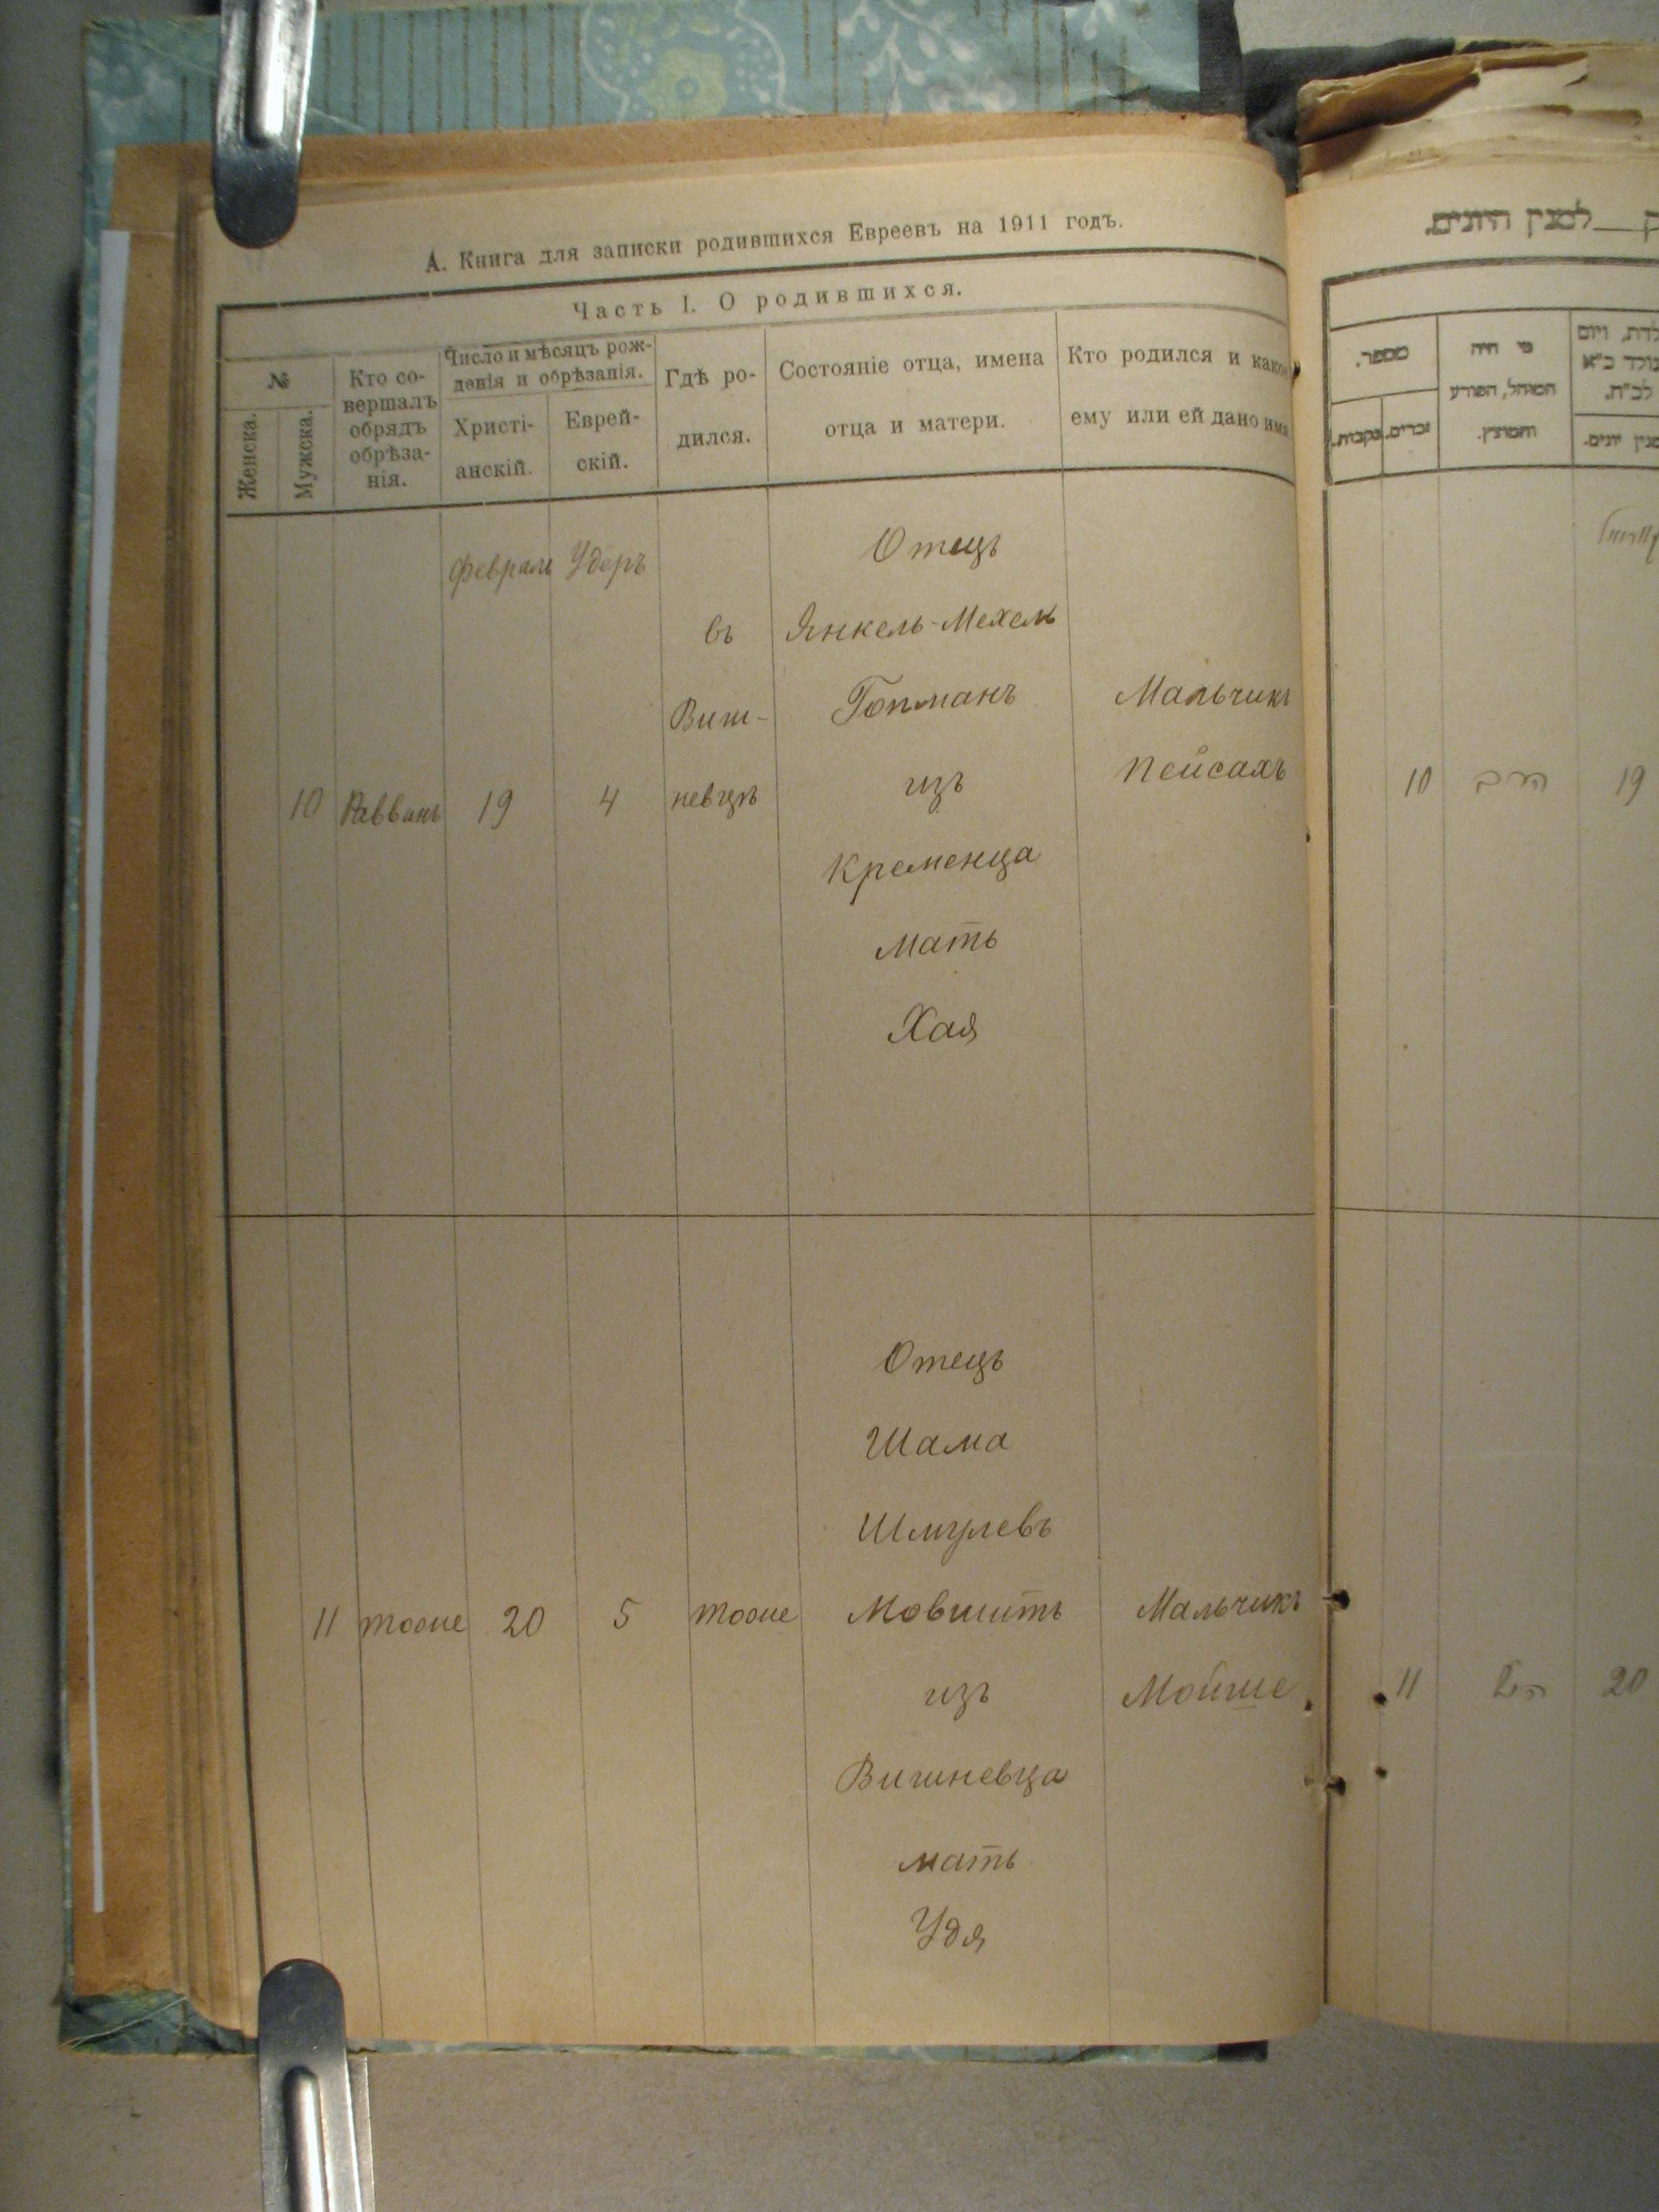 А. Книга для записки родившихся Евреевъ на 1911 годъ.
Часть I. О родившихся.
№
Женска.
Мужска.
Кто со-
вершалъ
обрядъ
обрѣза-
нія.
Число и мѣсяцъ рож-
денія и обрѣзанія.
Христі-
анскій.
Еврей-
скій.
Гдѣ ро-
дился.
Состояніе отца, имена
отца и матери.
Кто родился и какое
ему или ей дано имя
Февраль Удеръ
10 Раввинъ 19 4
въ
Виш-
невцѣ
Отецъ
Янкель-Мехель
Гопманъ
изъ
Кременца
мать
Хая
Мальчикъ
Пейсахъ
11 тоже 20 5 тоже
Отецъ
Шама
Шмулевъ
Мовшитъ
изъ
Вишневца
мать
Удя
Мальчикъ
Мойше
למנין היונים
מספר.
זכרים.
נקבות.
מי היה
המוהל, הפורע
והמוצץ.
10 הרב 19
11 20